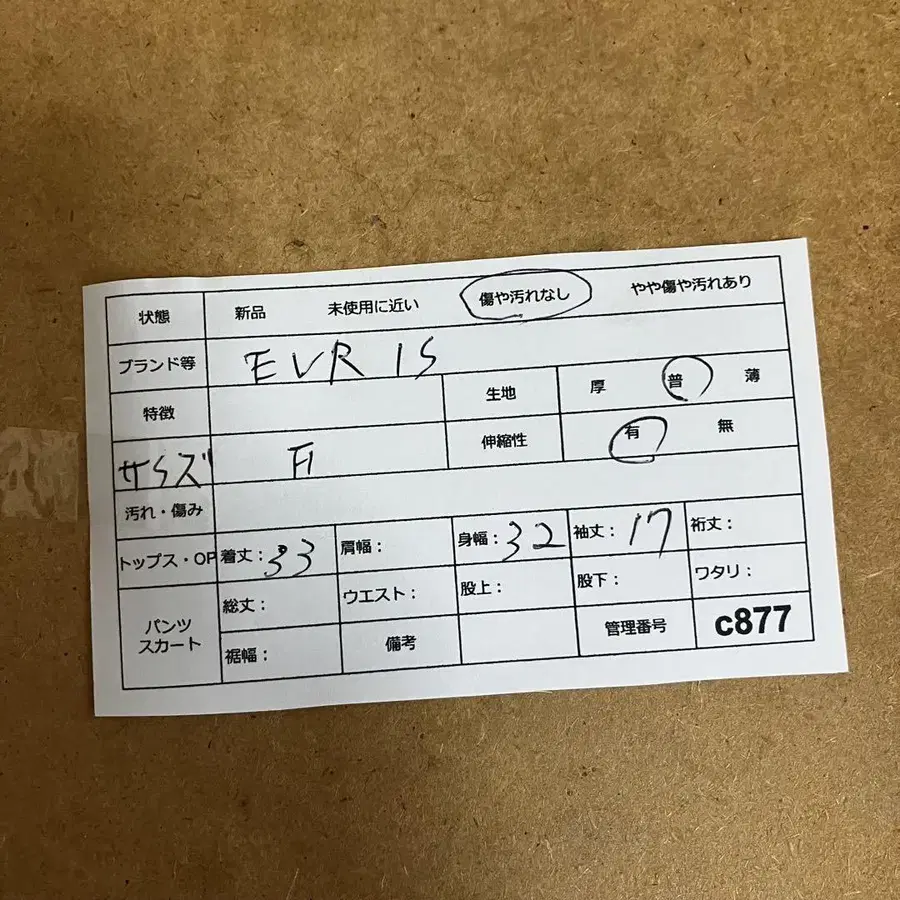 状態 新品 未使用に近い 傷や汚れなし やや傷や汚れあり
ブランド等 EVRIS
特徴 生地 厚 普 薄
サイズ F 伸縮性 有 無
汚れ・傷み
トップス・OP 着丈: 33 肩幅: 身幅: 32 袖丈: 17 裄丈:
パンツ スカート 総丈: ウエスト: 股上: 股下: ワタリ:
裾幅: 備考 管理番号 c877